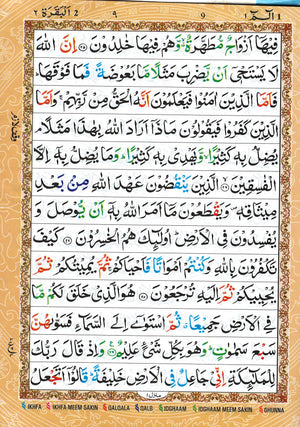 البقرة ٢ ٩ الٓمّٓ ١
فِيهَآ اَزْوَاجٌ مُّطَهَّرَةٌ وَّهُمْ فِيهَا خٰلِدُوْنَ ۝٢٥ اِنَّ اللّٰهَ
لَا يَسْتَحْيٖٓ اَنْ يَّضْرِبَ مَثَلًا مَّا بَعُوْضَةً فَمَا فَوْقَهَا ؕ
فَاَمَّا الَّذِيْنَ اٰمَنُوْا فَيَعْلَمُوْنَ اَنَّهُ الْحَقُّ مِنْ رَّبِّهِمْ ۚ وَاَمَّا
الَّذِيْنَ كَفَرُوْا فَيَقُوْلُوْنَ مَاذَآ اَرَادَ اللّٰهُ بِهٰذَا مَثَلًا ۘ
يُضِلُّ بِهٖ كَثِيْرًا ۙ وَّيَهْدِيْ بِهٖ كَثِيْرًا ؕ وَمَا يُضِلُّ بِهٖٓ اِلَّا
الْفٰسِقِيْنَ ۝٢٦ الَّذِيْنَ يَنْقُضُوْنَ عَهْدَ اللّٰهِ مِنْۢ بَعْدِ
مِيْثَاقِهٖ ۪ وَيَقْطَعُوْنَ مَآ اَمَرَ اللّٰهُ بِهٖٓ اَنْ يُّوْصَلَ وَ
يُفْسِدُوْنَ فِي الْاَرْضِ ؕ اُولٰٓئِكَ هُمُ الْخٰسِرُوْنَ ۝٢٧ كَيْفَ
تَكْفُرُوْنَ بِاللّٰهِ وَكُنْتُمْ اَمْوَاتًا فَاَحْيَاكُمْ ۚ ثُمَّ يُمِيْتُكُمْ ثُمَّ
يُحْيِيْكُمْ ثُمَّ اِلَيْهِ تُرْجَعُوْنَ ۝٢٨ هُوَ الَّذِيْ خَلَقَ لَكُمْ مَّا
فِي الْاَرْضِ جَمِيْعًا ۗ ثُمَّ اسْتَوٰٓى اِلَى السَّمَآءِ فَسَوّٰىهُنَّ
سَبْعَ سَمٰوٰتٍ ؕ وَهُوَ بِكُلِّ شَيْءٍ عَلِيْمٌ ۝٢٩ وَاِذْ قَالَ رَبُّكَ
لِلْمَلٰٓئِكَةِ اِنِّيْ جَاعِلٌ فِي الْاَرْضِ خَلِيْفَةً ؕ قَالُوْٓا اَتَجْعَلُ
IKHFA IKHFA MEEM SAKIN QALQALA QALB IDGHAAM IDGHAAM MEEM SAKIN GHUNNA